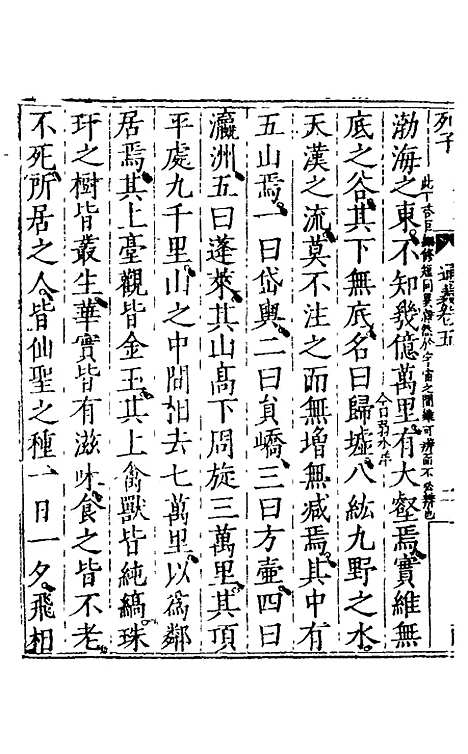 列子
通義卷五
二
渤海之東不知幾億萬里有大壑焉實維無
底之谷其下無底名曰歸墟八紘九野之水
天漢之流莫不注之而無增無减焉其中有
五山焉一曰岱輿二曰員嶠三曰方壺四曰
瀛洲五曰蓬萊其山高下周旋三萬里其頂
平處九千里山之中間相去七萬里以為鄰
居焉其上臺觀皆金玉其上禽獸皆純縞珠
玕之樹皆叢生華實皆有滋味食之皆不老
不死所居之人皆仙聖之種一日一夕飛相